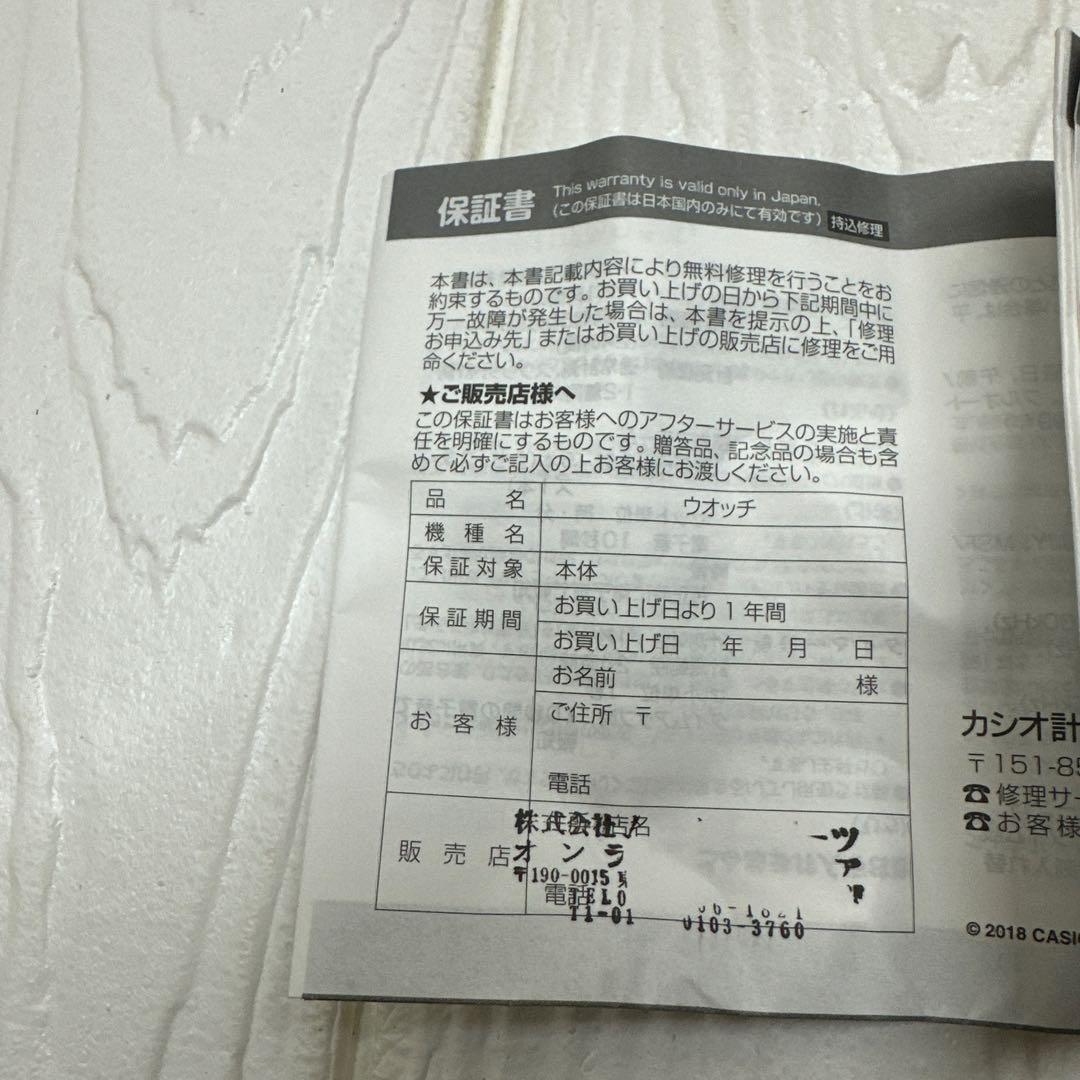 保証書
This warranty is valid only in Japan.
(この保証書は日本国内のみにて有効です)
持込修理
本書は、本書記載内容により無料修理を行うことをお
約束するものです。お買い上げの日から下記期間中に
万一故障が発生した場合は、本書を提示の上、「修理
お申込み先」またはお買い上げの販売店に修理をご用
命ください。
★ご販売店様へ
この保証書はお客様へのアフターサービスの実施と責
任を明確にするものです。贈答品、記念品の場合も含
めて必ずご記入の上お客様にお渡しください。
品名 ウオッチ
機種名
保証対象 本体
保証期間 お買い上げ日より1年間
お買い上げ日 年 月 日
お客様 お名前 様
ご住所 〒
電話
販売店
株式会社
オンラ
〒190-0015
電話
TEL0
T1-01 0103-3760
カシオ計
〒151-85
☎修理サー
☎お客様
© 2018 CASIO